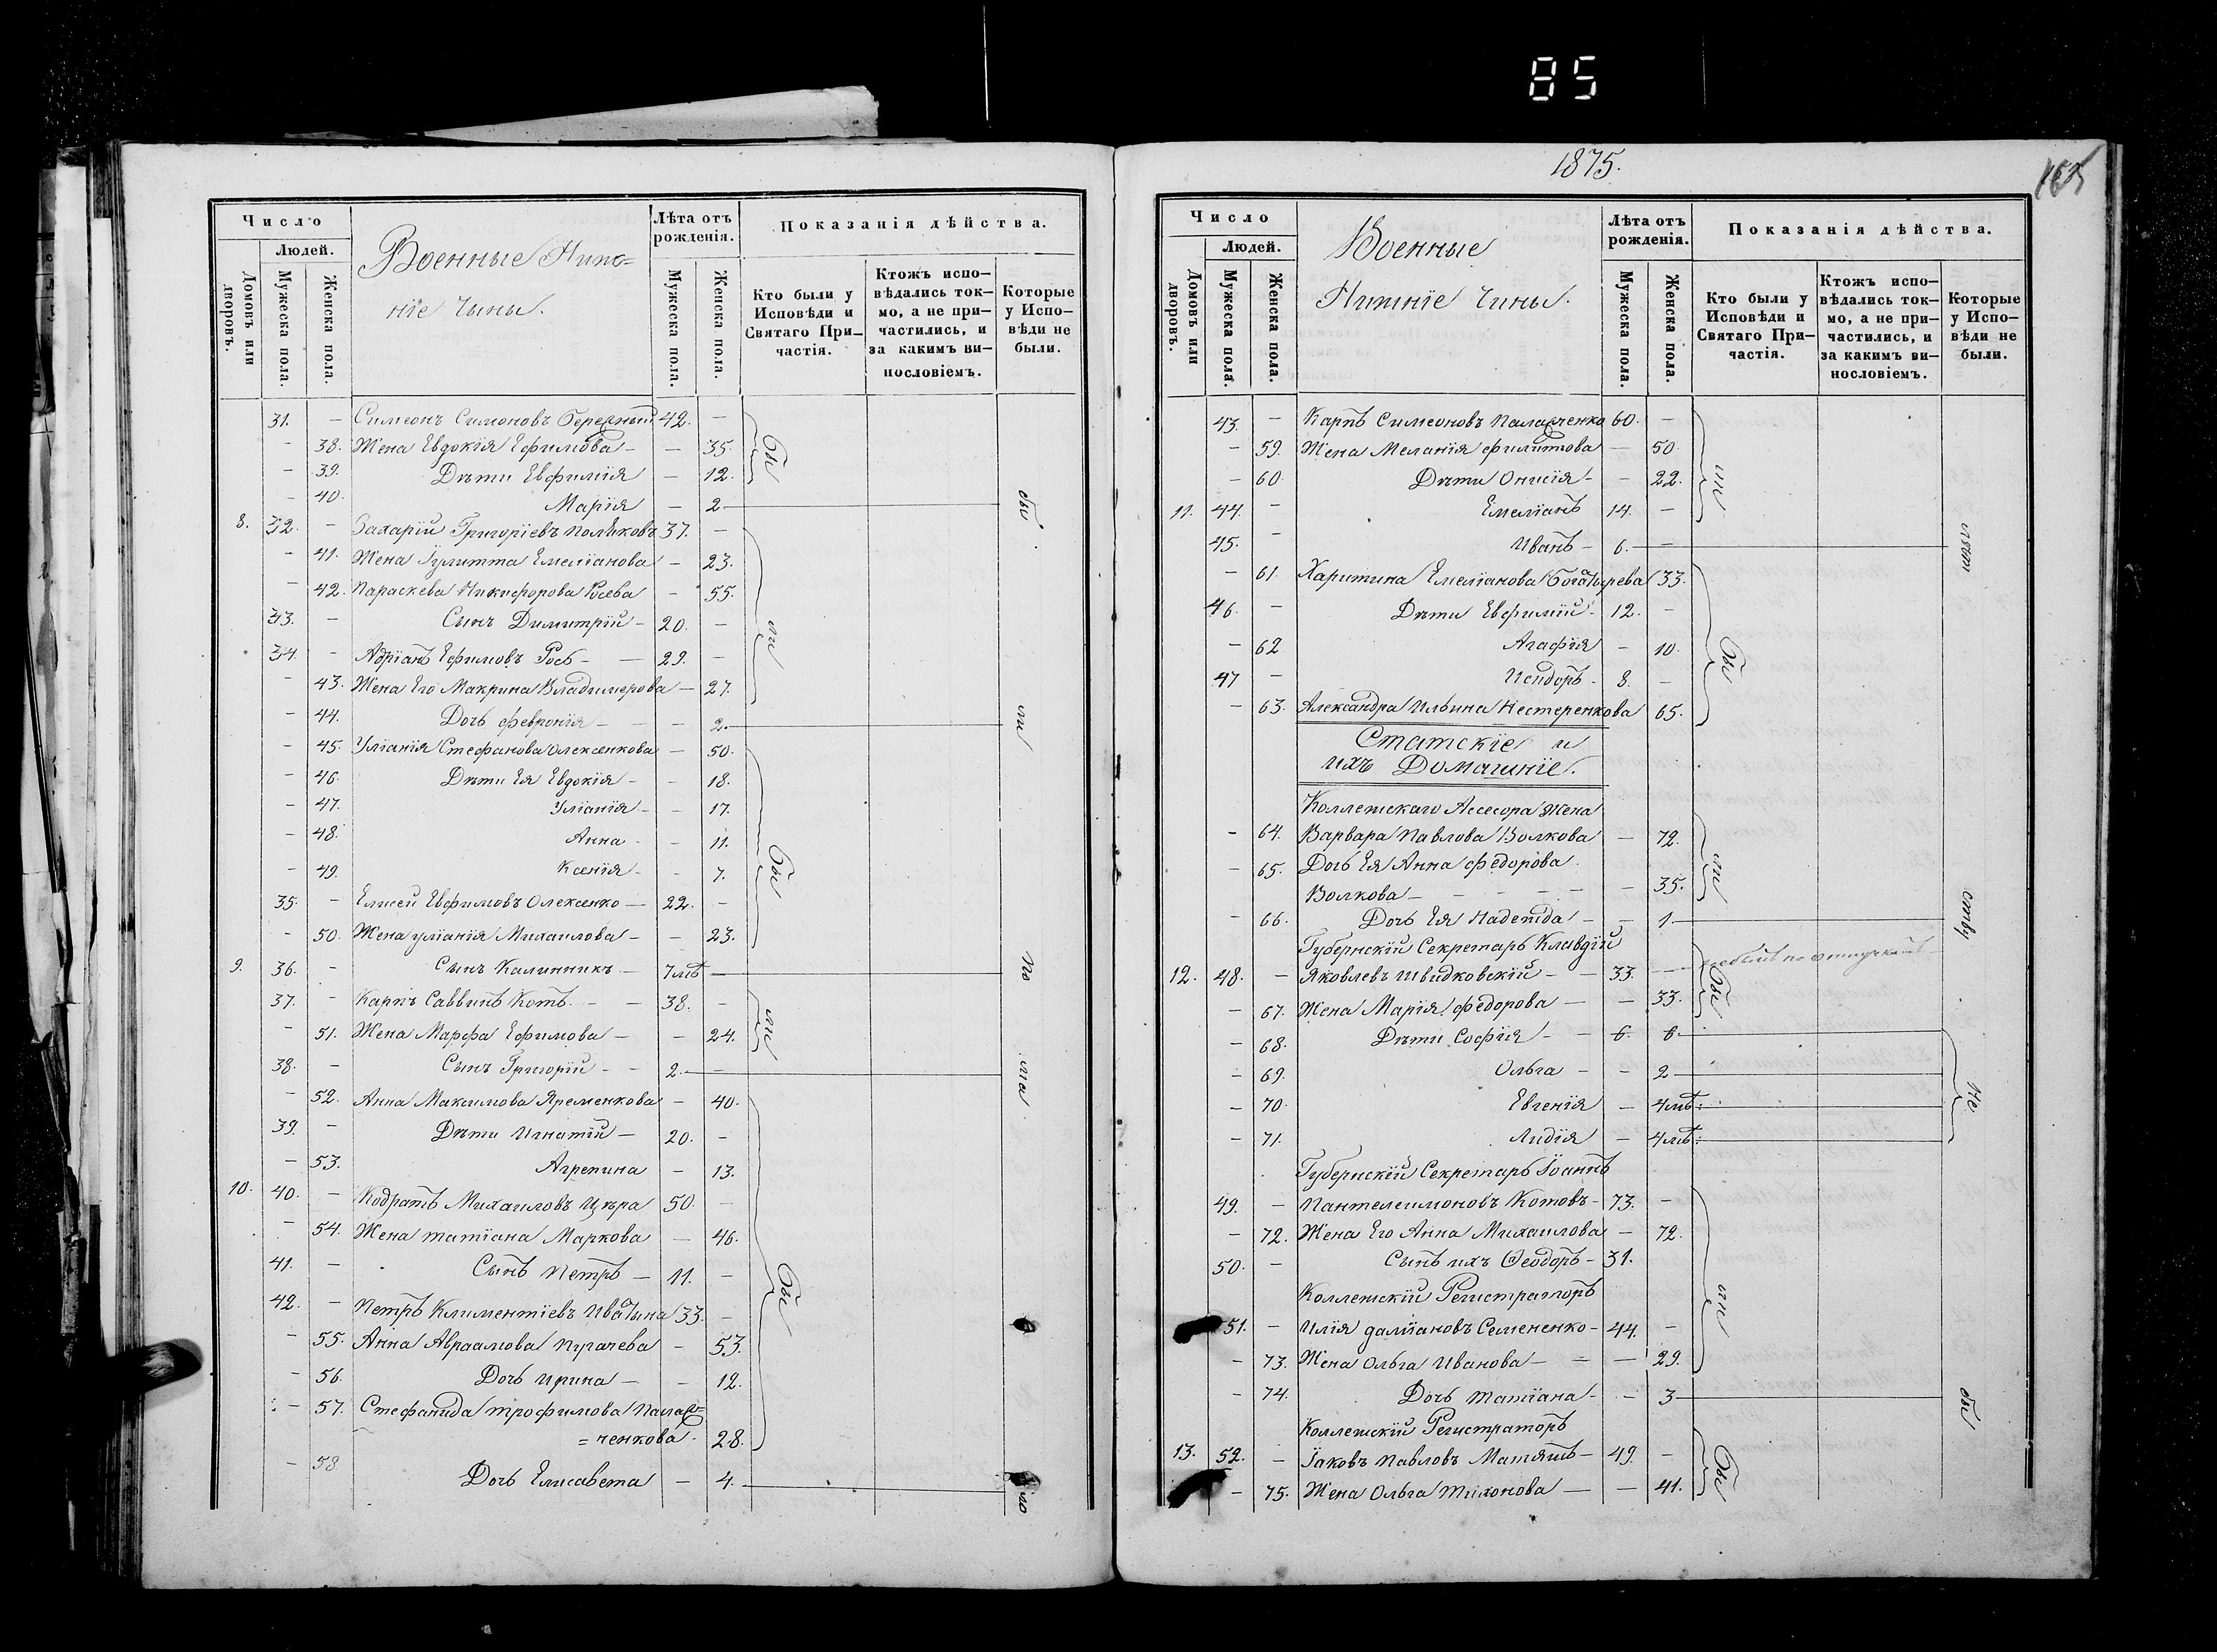 85
Число
Людей.
Домовъ или дворовъ.
Мужеска пола.
Женска пола.
Военные Ниж=
ніе Чины.
Лѣта отъ рожденія.
Мужеска пола.
Женска пола.
Показанія дѣйства.
Кто были у Исповѣди и Святаго При-частія.
Ктожъ испо-вѣдались ток-мо, а не при-частились, и за какимъ ви-нословіемъ.
Которые у Испо-вѣди не были.
31. — Симеонъ Симоновъ 42. —
— 38. Жена Евдокія Ефимова — — 35.
— 39. Дѣти Евфимія — 12.
— 40. Марія — 2
8. 32. — Захарій Григоріевъ Поляковъ 37. —
— 41. Жена Іулитта Емеліанова — 23.
— 42. Параскева Никифорова Усева — 55.
33. — Сынъ Димитрій — 20. —
34. — Адріанъ Ефимовъ — — 29. —
— 43. Жена Его Макрина Владимерова — 27.
— 44. Дочь Февронія — — — 2.
— 45. Уліанія Стефанова Олексенкова — 50.
— 46. Дѣти Ея Евдокія — — 18.
— 47. Уліанія — — 17.
— 48. Анна — — 11.
— 49. Ксенія — — 7.
35. — Елисей Евфимовъ Олексенко — 22. —
— 50. Жена Уліанія Михаилова — — 23.
9. 36. — Сынъ Калинникъ — 7мѣ
37. — Карпъ Саввинъ Котъ. — — 38. —
— 51. Жена Марфа Ефимова — — 24.
38. — Сынъ Григорій — — 2. —
— 52. Анна Максимова Яременкова — 40.
39. — Дѣти Игнатій — 20. —
— 53. Агрепина — 13.
10. 40. — Кодратъ Михаиловъ Цыра 50. —
— 54. Жена Татіана Маркова — 46.
41. — Сынъ Петръ — 11. —
42. — Петръ Климентіевъ 33. —
— 55. Анна Авраамова Пугачева — 53.
— 56. Дочь Ирина — — 12.
— 57. Стефанида Трофимова Пала=
=ченкова. 28.
— 58 Дочь Елисавета — 4.
1875.
165
Число
Людей.
Домовъ или дворовъ.
Мужеска пола.
Женска пола.
Военные
Нижніе Чины.
Лѣта отъ рожденія.
Мужеска пола.
Женска пола.
Показанія дѣйства.
Кто были у Исповѣди и Святаго При-частія.
Ктожъ испо-вѣдались ток-мо, а не при-частились, и за какимъ ви-нословіемъ.
Которые у Испо-вѣди не были.
43. — Карпъ Симеоновъ 60. —
— 59. Жена Меланія Филипова — 50
— 60. Дѣти Онисія — — 22.
11. 44. — Емеліанъ 14. —
45. — Иванъ — 6. —
— 61. Харитина Емеліанова Богатырева 33.
46. — Дѣти Евфимій — 12. —
— 62 Агафія — 10.
47 — Исидоръ — 8. —
— 63. Александра Ильина Нестеренкова 65.
Статскіе и
ихъ Домашніе.
Коллежскаго Ассесора Жена
— 64. Варвара Павлова Волкова — 72.
— 65. Дочь Ея Анна Федорова
Волкова — — — — — 35.
— 66. Дочь Ея Надежда — — 1
Губернскій Секретарь Клавдій
12. 48. — Яковлевъ Швидковскій — — 33. —
— 67. Жена Марія Федорова — — 33.
— 68. Дѣти Софія — — 6. 6
— 69. Ольга — — 2
— 70. Евгенія — 4мѣ:
— 71. Лидія — 4мѣ:
Губернскій Секретарь Іоаннъ
49. — Пантелеимоновъ Котовъ — 73. —
— 72. Жена Его Анна Михаилова — 72.
50. — Сынъ ихъ Ѳеодоръ — 31.
Коллежскій Регистраторъ
51. — Илія Даміановъ Семененко — 44. —
— 73. Жена Ольга Иванова — — — 29.
— 74. Дочь Татіана — — 3
Коллежскій Регистраторъ
13. 52. — Іаковъ Павловъ Матяшъ — 49. —
— 75. Жена Ольга Тихонова — — 41.